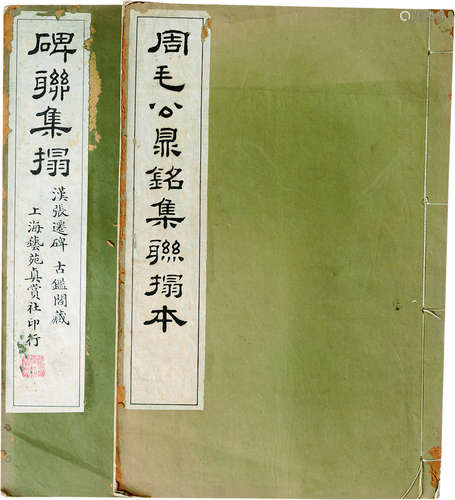 周毛公鼎銘集聯搨本
碑聯集搨
漢張遷碑 古鑑閣藏
上海藝苑真賞社印行